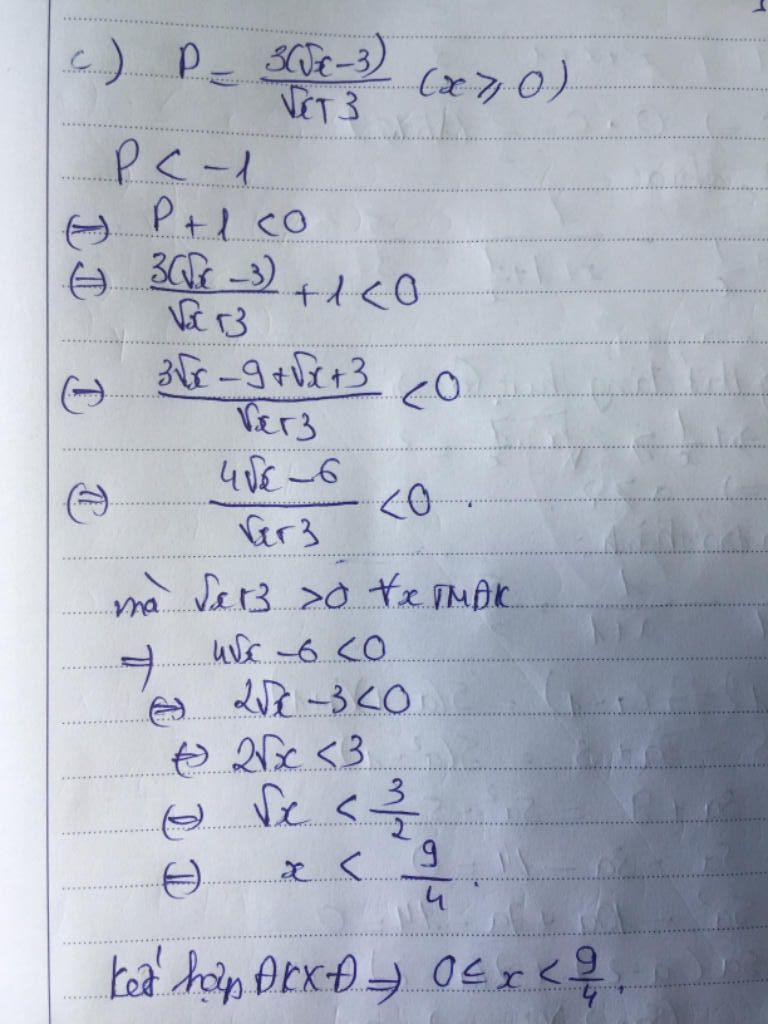 c) P = 3(√x - 3) / √x + 3 (x ⩾ 0)
P < -1
⇔ P + 1 < 0
⇔ 3(√x - 3) / √x + 3 + 1 < 0
⇔ 3√x - 9 + √x + 3 / √x + 3 < 0
⇔ 4√x - 6 / √x + 3 < 0 .
mà √x + 3 > 0 ∀x TMĐK
⇒ 4√x - 6 < 0
⇔ 2√x - 3 < 0
⇔ 2√x < 3
⇔ √x < 3/2
⇔ x < 9/4 .
kết hợp ĐKXĐ ⇒ 0 ≤ x < 9/4 .